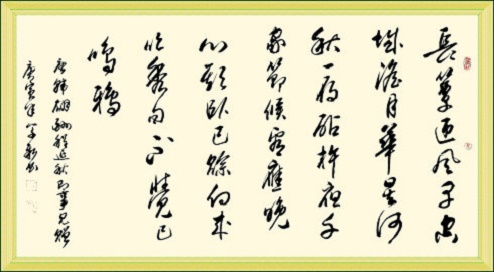 長簟迎风早空
城澹月華星河
秋一雁砧杵夜千
家節候看應晚
心期卧已赊向来
吟秀句不覺已
鳴鴉
唐韩翃酬程延秋即事見贈
庚寅年书